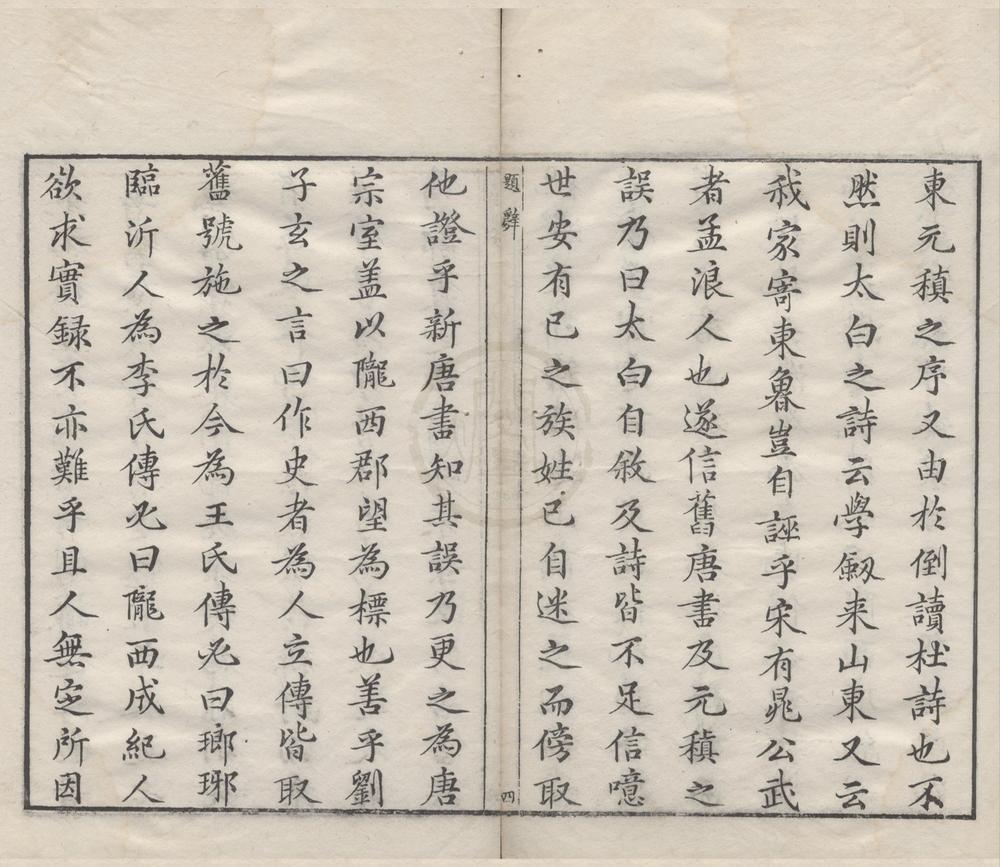 東元稹之序又由於倒讀杜詩也不
然則太白之詩云學劔来山東又云
我家寄東魯豈自誣乎宋有晁公武
者孟浪人也遂信舊唐書及元稹之
誤乃曰太白自敘及詩皆不足信噫
世安有已之族姓已自迷之而傍取
題辭
四
他證乎新唐書知其誤乃更之為唐
宗室盖以隴西郡望為標也善乎劉
子玄之言曰作史者為人立傳皆取
舊號施之於今為王氏傳必曰瑯琊
臨沂人為李氏傳必曰隴西成紀人
欲求實録不亦難乎且人無定所因